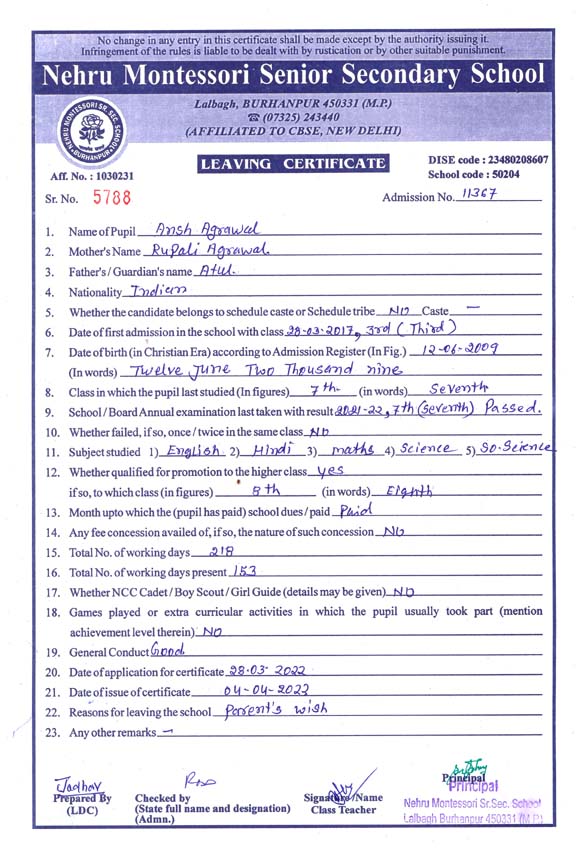 No change in any entry in this certificate shall be made except by the authority issuing it.
Infringement of the rules is liable to be dealt with by rustication or by other suitable punishment.
Nehru Montessori Senior Secondary School
Lalbagh, BURHANPUR 450331 (M.P.)
☎ (07325) 243440
(AFFILIATED TO CBSE, NEW DELHI)
NEHRU MONTESSORI SR. SEC. SCHOOL
BURHANPUR
LEAVING CERTIFICATE
DISE code : 23480208607
Aff. No. : 1030231
School code : 50204
Sr. No. 5788
Admission No. 11367
1. Name of Pupil Ansh Agrawal
2. Mother's Name Rupali Agrawal
3. Father's / Guardian's name Atul
4. Nationality Indian
5. Whether the candidate belongs to schedule caste or Schedule tribe NO Caste —
6. Date of first admission in the school with class 28-03-2017, 3rd (Third)
7. Date of birth (in Christian Era) according to Admission Register (In Fig.) 12-06-2009
(In words) Twelve June Two Thousand nine
8. Class in which the pupil last studied (In figures) 7th (in words) Seventh
9. School / Board Annual examination last taken with result 2021-22, 7th (Seventh) Passed.
10. Whether failed, if so, once / twice in the same class NO
11. Subject studied 1) English 2) Hindi 3) maths 4) Science 5) So-Science
12. Whether qualified for promotion to the higher class yes
if so, to which class (in figures) 8th (in words) Eighth
13. Month upto which the (pupil has paid) school dues / paid Paid
14. Any fee concession availed of, if so, the nature of such concession NO
15. Total No. of working days 218
16. Total No. of working days present 153
17. Whether NCC Cadet / Boy Scout / Girl Guide (details may be given) NO
18. Games played or extra curricular activities in which the pupil usually took part (mention
achievement level therein) NO
19. General Conduct Good
20. Date of application for certificate 28-03-2022
21. Date of issue of certificate 04-04-2022
22. Reasons for leaving the school Parent's wish
23. Any other remarks —
Jadhav
Prepared By
(LDC)
Checked by
(State full name and designation)
(Admn.)
Signature/Name
Class Teacher
Principal
Principal
Nehru Montessori Sr.Sec. School
Lalbagh Burhanpur 450331 (M.P.)